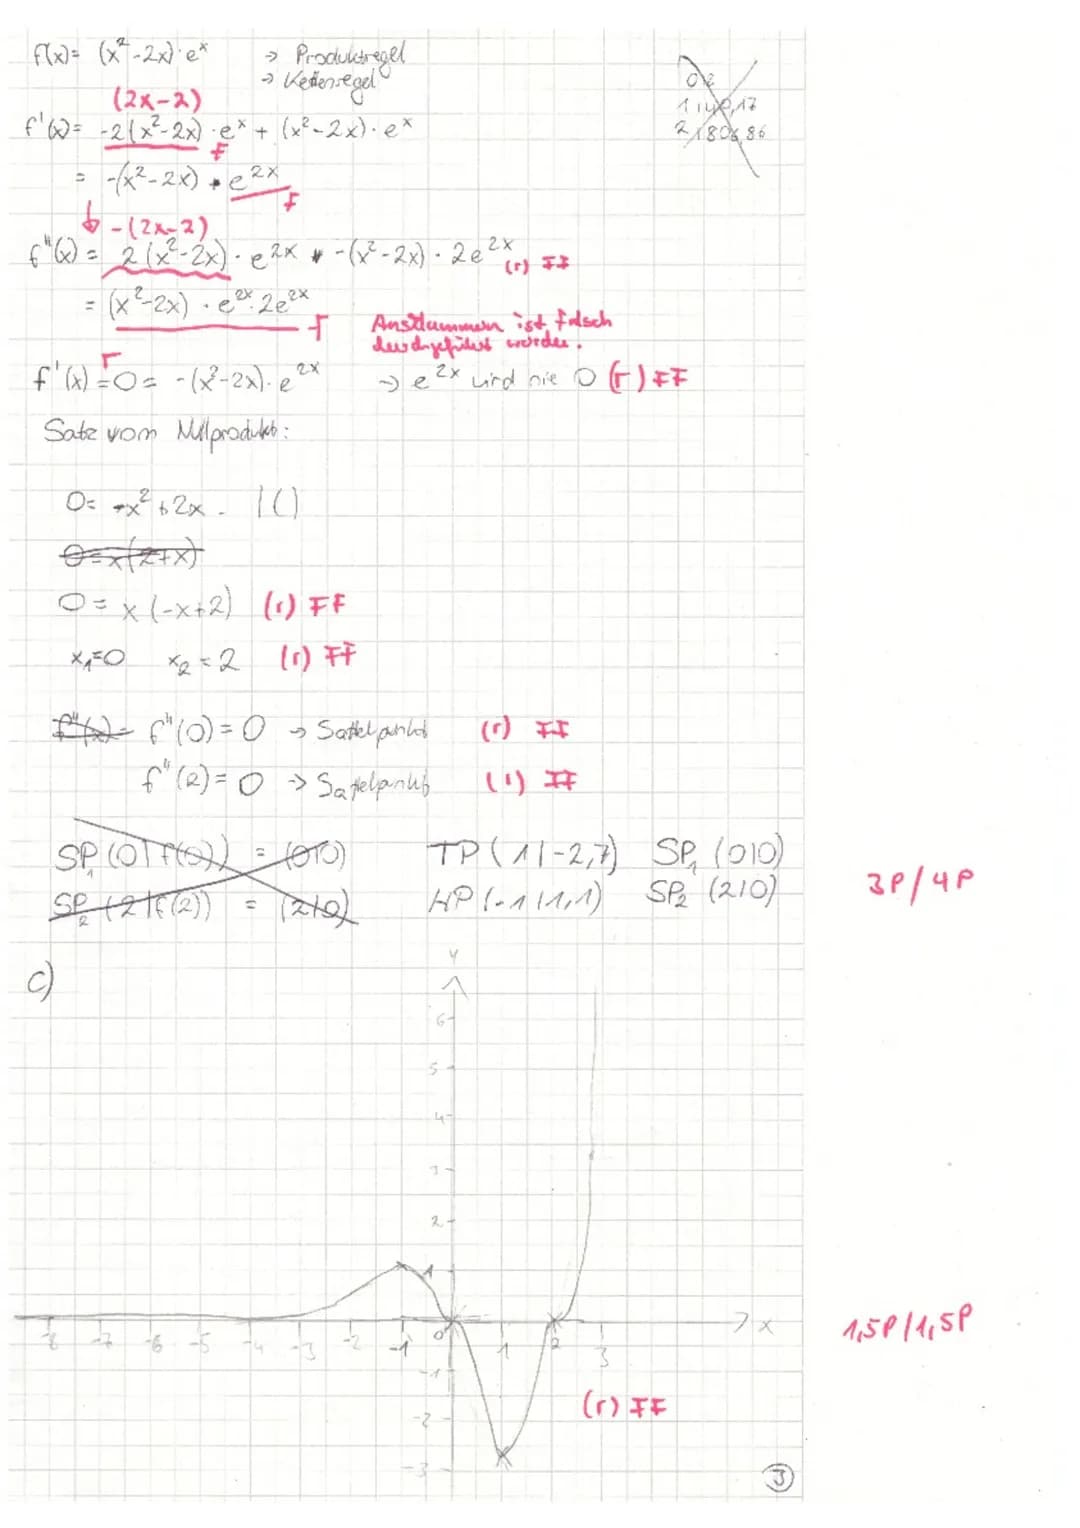 f(x)= (x²-2x)·eˣ → Produktregel
→ Kettenregel
(2x-2)
f'(x)= -2(x²-2x)·eˣ + (x²-2x)·eˣ
F
= -(x²-2x) · e²ˣ
F
-(2x-2)
f''(x) = 2(x²-2x)·e²ˣ · -(x²-2x) · 2e²ˣ (r) FF
= (x²-2x) · e²ˣ·2e²ˣ
F
ist falsch
durchgeführt worden.
r
f'(x)=0= -(x²-2x)·e²ˣ → e²ˣ wird nie 0 (r) FF
Satz vom Nullprodukt:
0= -x²+2x |()
0=x(2+x)
0= x(-x+2) (r) FF
x₁=0 x₂=2 (r) FF
f''(x)= f''(0)=0 → Sattelpunkt (r) FF
f''(2)=0 → Sattelpunkt (r) FF
SP₁(0|f(0)) = (0|0) TP(1|-2,7) SP₁(0|0)
SP₂(2|f(2)) = (2|0) HP(-1|1,1) SP₂(2|0)
3P/4P
c)
y
6
5
4
3
2
1
-8 -7 -6 -5 -4 -3 -2 -1 0 1 2 3 x
1,5P/1,5P
-1
-2
-3
(r) FF
3